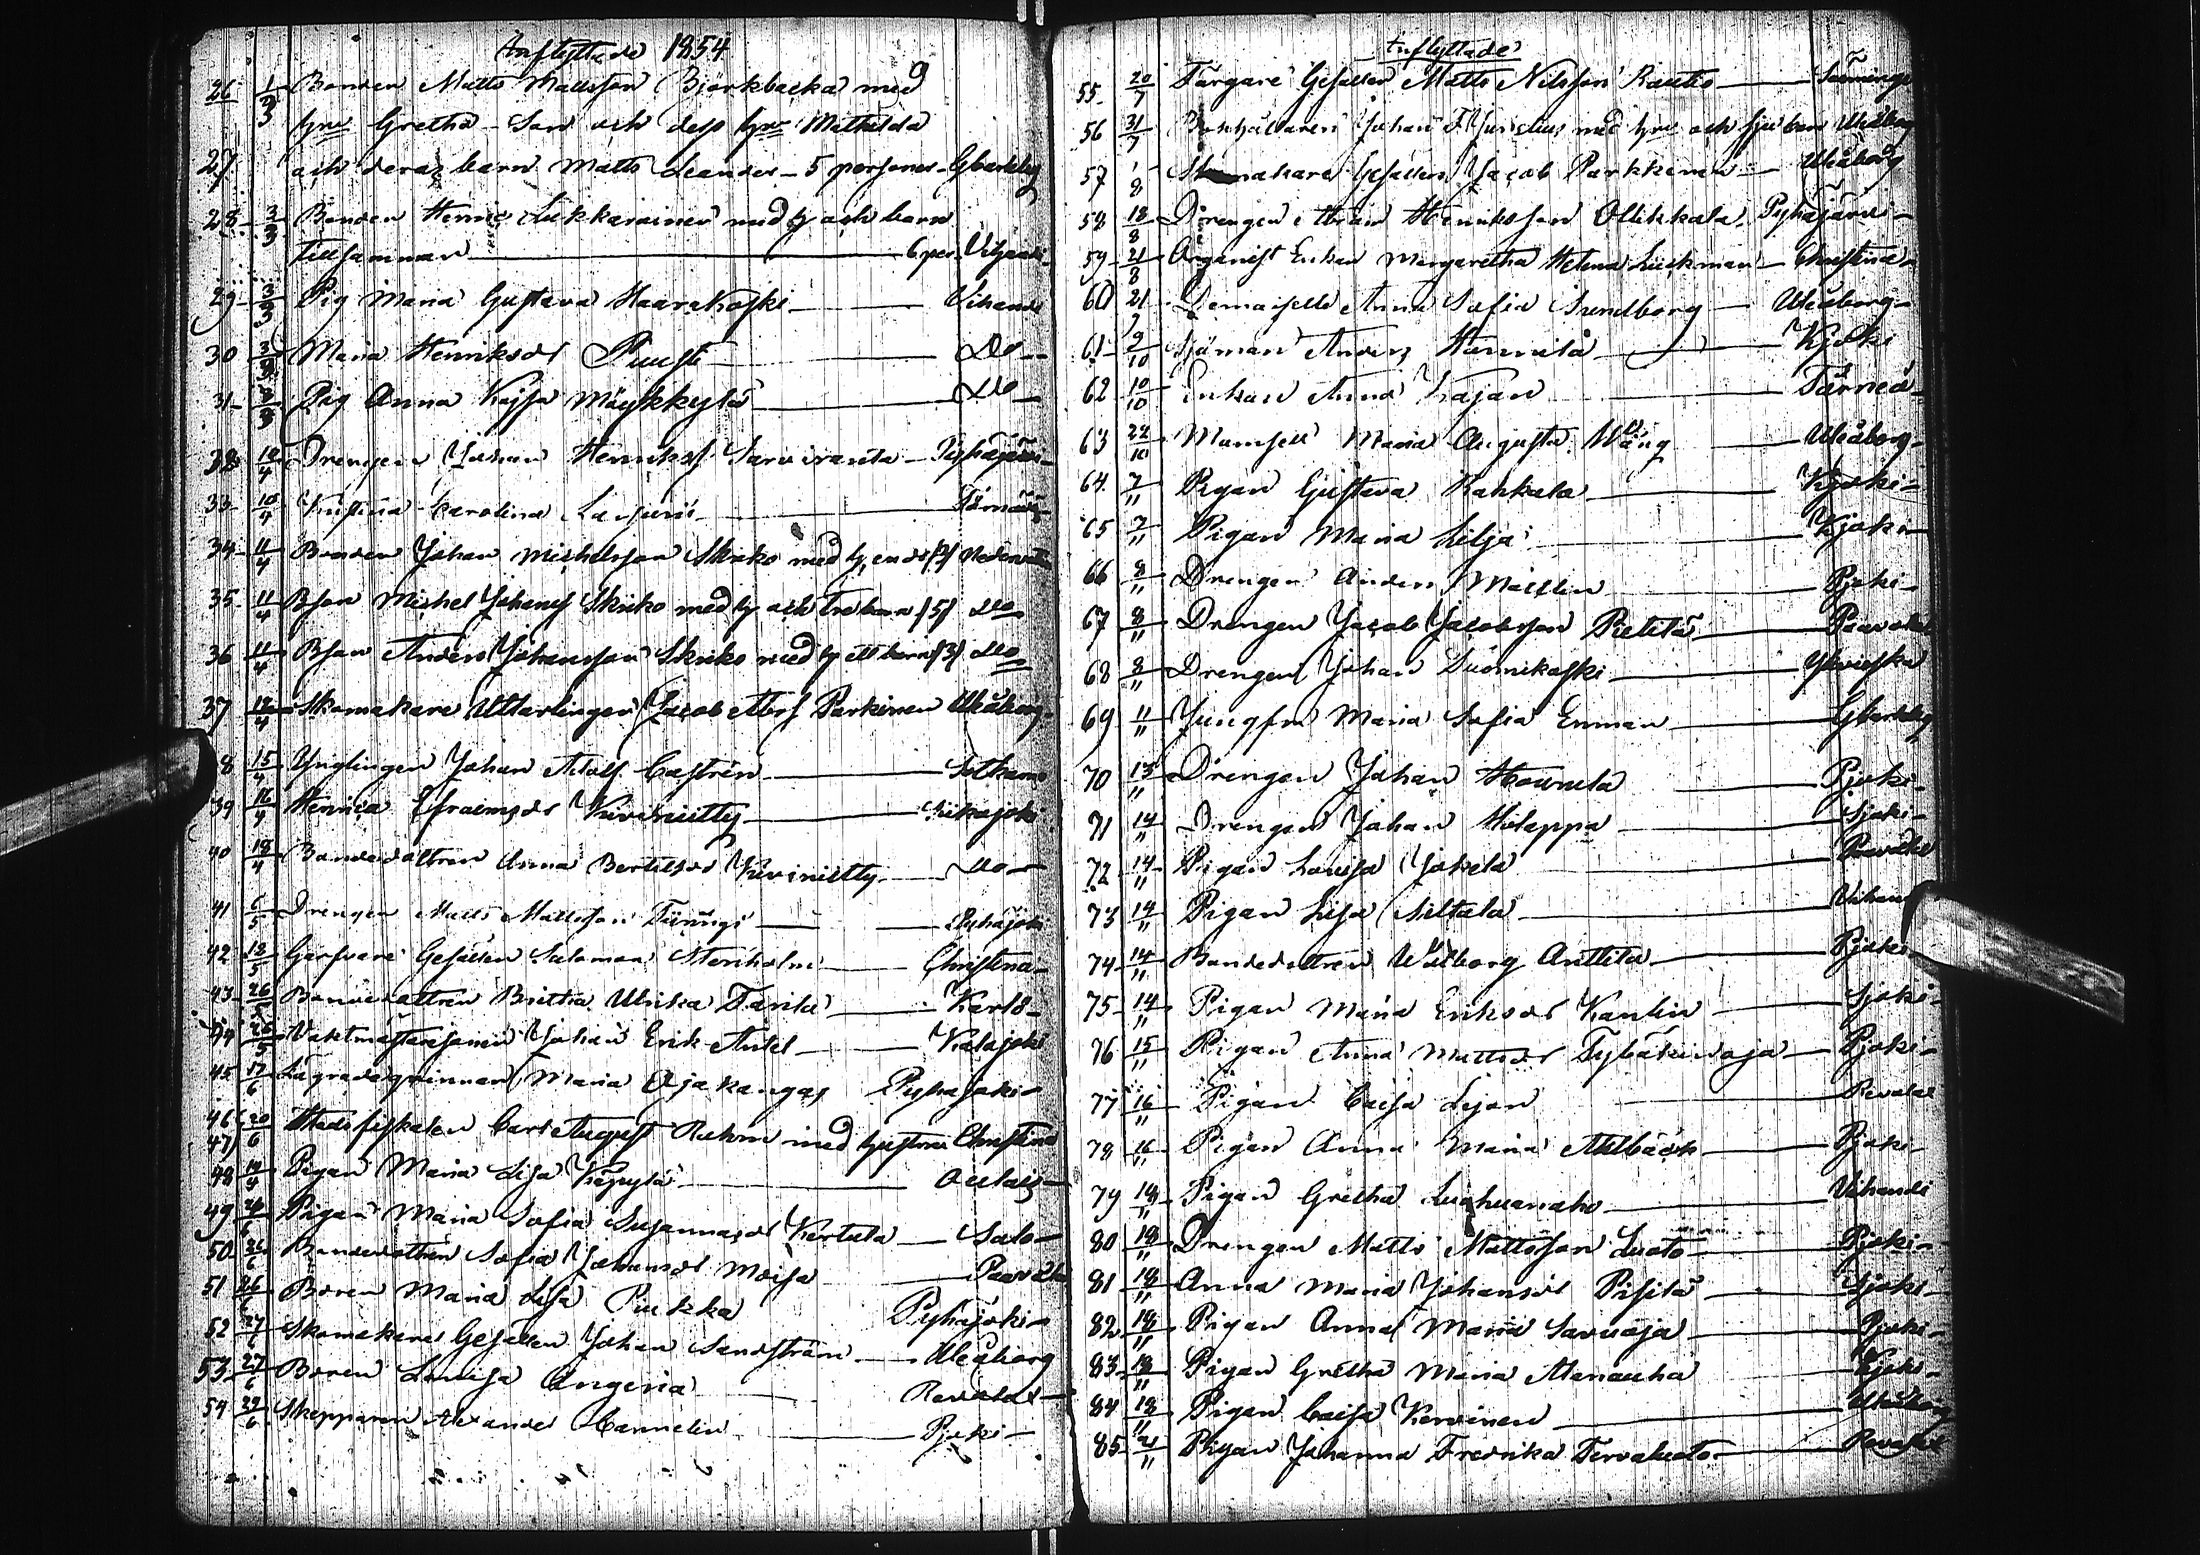 Inflyttade 1854
9
26 1/3 Bonden Matts Mattsson Björkbacka med
hru Gretha - Son och dess hru Mathilda
27 och deras barn Matts Leander - 5 personer - Gbarleby
28 3/3 Bonden Henric Lukkarainen med h och barn
tillsamman 6 per. Vihandi
29 3/3 Pig Maria Gustava Haarakoski Vihandi
30 3/3 Maria Henriksdr Puusti Do
31 3/3 Pig Anna Kajsa Mäykkylä Do
32 10/4 Drengen Johan Henrikss Sarviranta Pyhäjärvi
33 10/4 Kristina Carolina
34 11/4 Bonden Johan Michelsson Skriko med h, en dr (3)
35 11/4 Bson Michel Johanss Skriko med h och tre barn (5) Do
36 11/4 Bson Anders Johansson Skriko med h ett barn (3) Do
37 12/4 Skomakare Jacob Abrs Parkinen Uleåborg
38 15/4 Ynglingen Johan Adolf Castrén Sotkamo
39 16/4 Henrica Efraimsdr Kiviniitty Siikajoki
40 18/4 Bondedottren Anna Bertilsdr Kiviniitty Do
41 6/5 Drengen Matts Mattsson Pyhäjoki
42 12/5 Garfvare Gesällen Salomon Stenholm Christina
43 26/5 Bondedottren Britha Ulrika Karlö
44 26/5 Vaktmästaresonen Johan Erik Kalajoki
45 17/6 Lägradeqvinnan Maria Ojakangas Pyhäjoki
46 20/6 Stadsfiskalen Carl August Rehm med hustru Christina
47
48 Pigan Maria Lisa Käpylä Oulais
49 Pigan Maria Sofia Susannasdr Kertula Salo
50 26/6 Bondedottren Sofia Johansdr Moisa Paavola
51 26/6 Boren Maria Lisa Piukka Pyhäjoki
52 27/6 Skomakare Gesällen Johan Sandström Uleåborg
53 27/6 Boren Lovisa Angeria Revolax
54 29/6 Skepparen Alexander Cannelin Pjoki
Inflyttade
55 20/7 Färgare Gesällen Matts Nilsson Rautio
56 31/7 Bokhållaren Johan F. med hru och sju barn Uleåborg
57 1/8 Skomakare Gesällen Jacob Parkkinen Uleåborg
58 18/8 Drengen Abram Henriksson Ollikkala Pyhäjärvi
59 21/8 Organist Enkan Margaretha Helena Luckman Christina
60 21 Demoiselle Anna Sofia Sundborg Uleåborg
61 9/10 Sjöman Anders Hannila Kjoki
62 10/10 Enkan Anna Kajan
63 22/10 Mamsell Maria Augusta Wäng Uleåborg
64 7/11 Pigan Gustava Kahkala Kjoki
65 7/11 Pigan Maria Lilja Kjoki
66 8/11 Drengen Anders Pjoki
67 8/11 Drengen Jacob Jacobsson Pietilä Paavola
68 8/11 Drengen Johan Suomikoski Ylivieska
69 11/11 Jungfru Maria Sofia Enman Gbarleby
70 13/11 Drengen Johan Hourula Pjoki
71 14/11 Drengen Johan Holappa Sjoki
72 14/11 Pigan Lovisa Jokela Paavola
73 14/11 Pigan Lisa Siltala Vihandi
74 14/11 Bondedottren Walborg Anttila Pjoki
75 14/11 Pigan Maria Eriksdr Kanlin Sjoki
76 15/11 Pigan Anna Mattsdr Pjoki
77 16/11 Pigan Caisa Lejon Revolax
78 16/11 Pigan Anna Maria Ahlbäck Pjoki
79 18/11 Pigan Gretha Luohuanaho Vihandi
80 18/11 Drengen Matts Mattsson Luoto Pjoki
81 18/11 Anna Maria Johansdr Pisilä Sjoki
82 18/11 Pigan Anna Maria Savuoja Pjoki
83 18/11 Pigan Gretha Maria Kjoki
84 18/11 Pigan Caisa Kervinen Uleåborg
85 21/11 Pigan Johanna Fredrika Tervaluoto Revolax